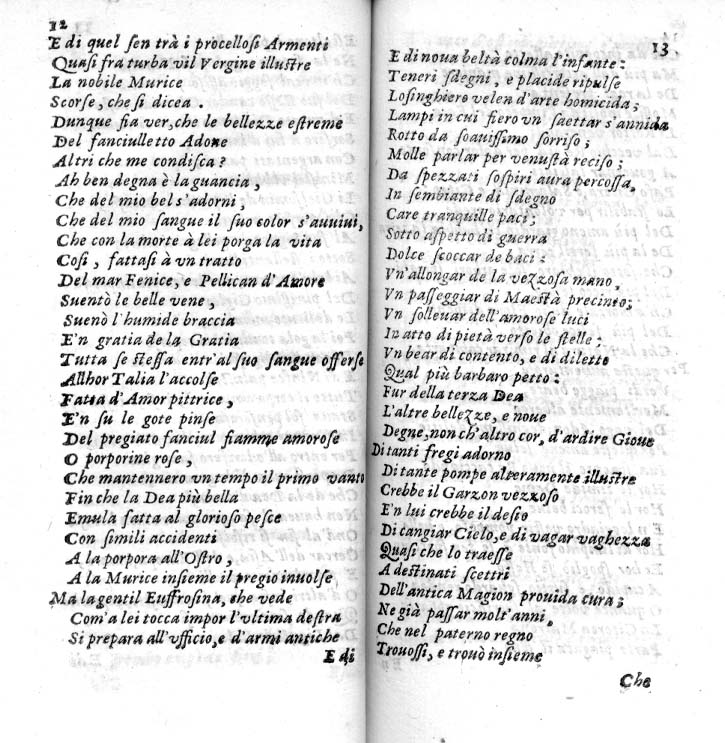 12
E di quel ſen trà i procelloſi Armenti
Quaſi fra turba vil Vergine illuſtre
La nobile Murice
Scorſe, che ſi dicea .
Dunque fia ver, che le bellezze eſtreme
Del fanciulletto Adone
Altri che me condiſca?
Ah ben degna è la guancia,
Che del mio bel s'adorni,
Che del mio ſangue il ſuo color s'auuiui,
Che con la morte à lei porga la vita
Coſi, fattaſi à vn tratto
Del mar Fenice, e Pellican d'Amore
Suentò le belle vene,
Suenò l'humide braccia
E'n gratia de la Gratia
Tutta ſe ſteſſa entr'al ſuo ſangue offerſe
Allhor Talia l'accolſe
Fatta d'Amor pittrice,
E'n ſu le gote pinſe
Del pregiato fanciul fiamme amoroſe
O porporine roſe,
Che mantennero vn tempo il primo vanto
Fin che la Dea più bella
Emula fatta al glorioſo peſce
Con ſimili accidenti
A la porpora all'Oſtro,
A la Murice inſieme il pregio inuolſe
Ma la gentil Euffroſina, che vede
Com'a lei tocca impor l'vltima deſtra
Si prepara all'vfficio, e d'armi antiche
E di
13
E di noua beltà colma l'infante:
Teneri ſdegni, e placide ripulſe
Loſinghiero velen d'arte homicida;
Lampi in cui fiero vn ſaettar s'annida
Rotto da ſoauiſſimo ſorriſo;
Molle parlar per venuſtà reciſo;
Da ſpezzati ſoſpiri aura percoſſa,
In ſembiante di ſdegno
Care tranquille paci;
Sotto aſpetto di guerra
Dolce ſcoccar de baci:
Vn'allongar de la vezzoſa mano,
Vn paſſeggiar di Maeſtà precinto;
Vn ſolleuar dell'amoroſe luci
In atto di pietà verſo le ſtelle;
Vn bear di contento, e di diletto
Qual più barbaro petto:
Fur della terza Dea
L'altre bellezze, e noue
Degne, non ch'altro cor, d'ardire Gioue
Di tanti fregi adorno
Di tante pompe alteramente illuſtre
Crebbe il Garzon vezzoſo,
E'n lui crebbe il deſio
Di cangiar Cielo, e di vagar vaghezza
Quaſi che lo traeſſe
A deſtinati ſcettri
Dell'antica Magion prouida cura;
Ne già paſſar molt'anni,
Che nel paterno regno
Trouoſſi, e trouò inſieme
Che